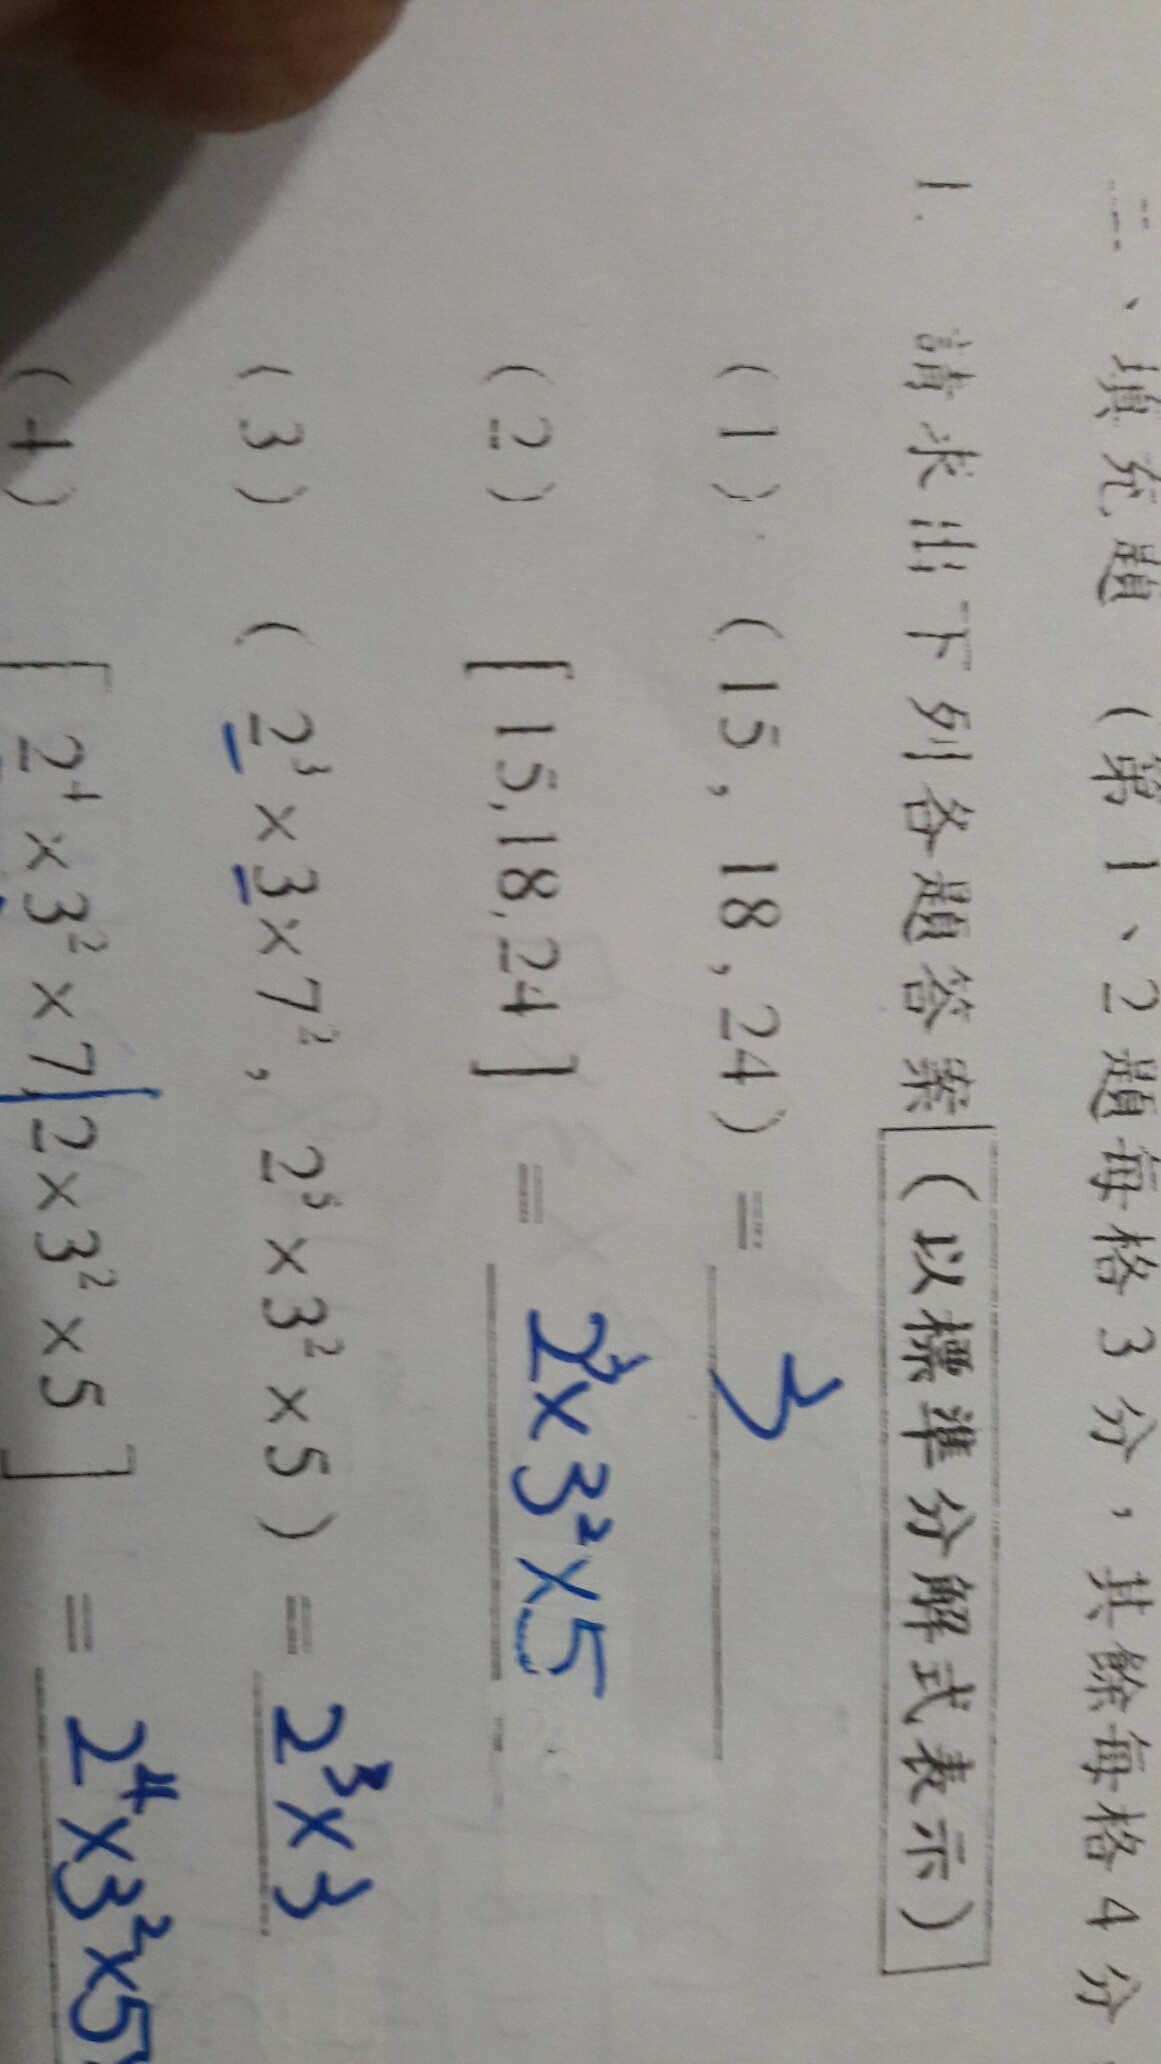 二、填充題 (第1、2題每格3分，其餘每格4分
1. 請求出下列各題答案 (以標準分解式表示)
(1) (15, 18, 24) = 3
(2) [15, 18, 24] = 2³×3²×5
(3) (2³×3×7², 2⁵×3²×5) = 2³×3
(4) [2⁴×3²×7, 2×3²×5] = 2⁴×3²×5